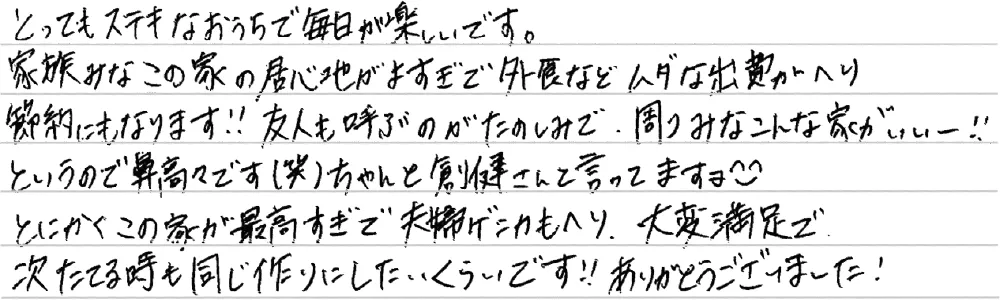 とってもステキなおうちで毎日が楽しいです。
家族みなこの家の居心地がよすぎで外食などムダな出費がへり
節約にもなります!! 友人も呼ぶのがたのしみで、周りみなこんな家がいいー!!
というので鼻高々です(笑)ちゃんと創健さんて言ってますヨ
とにかくこの家が最高すぎで夫婦ゲンカもへり、大変満足で
次たてる時も同じ作りにしたいくらいです!! ありがとうございました!